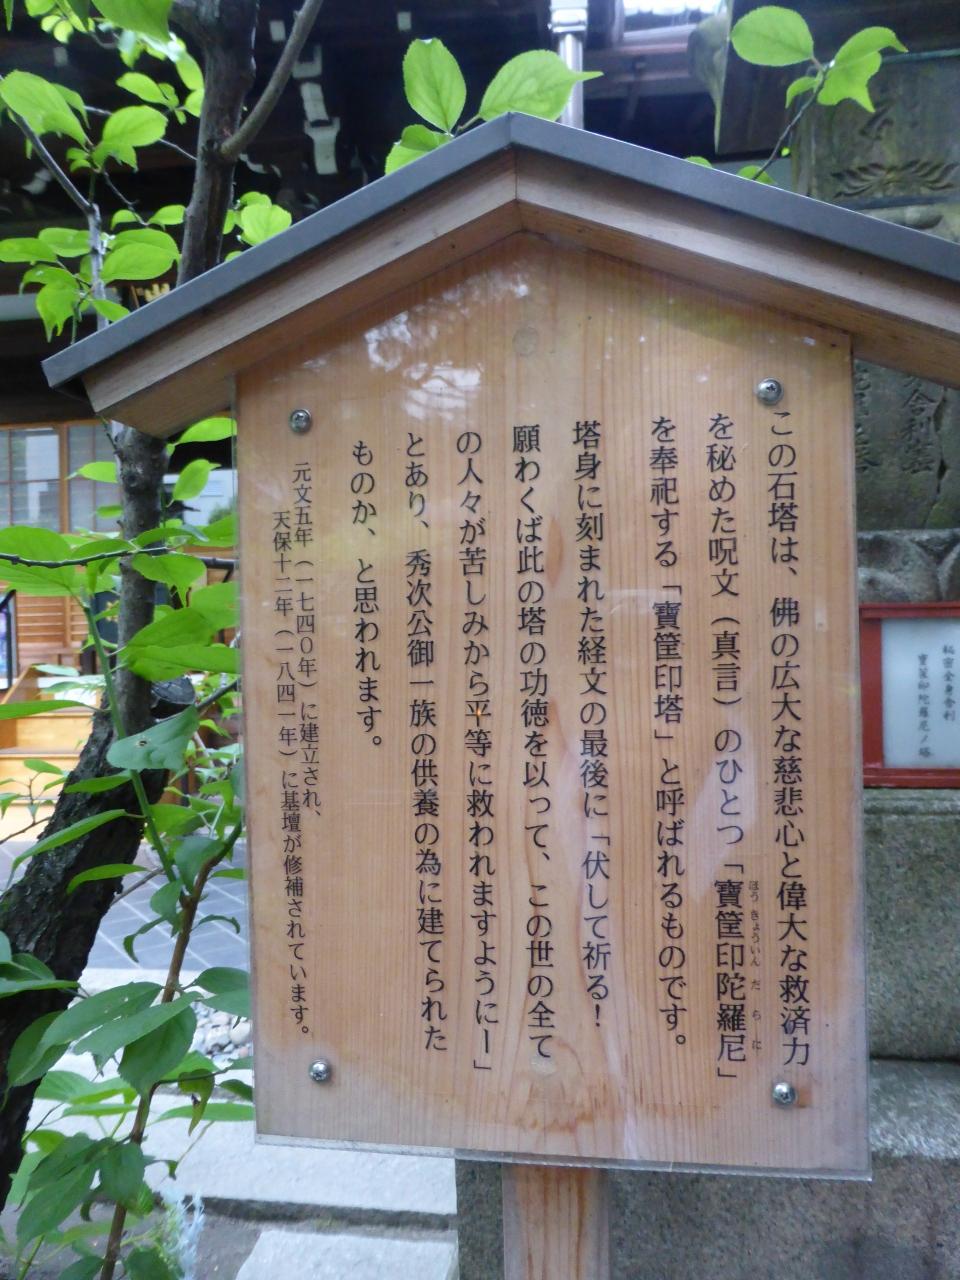 この石塔は、佛の広大な慈悲心と偉大な救済力
を秘めた呪文（真言）のひとつ「寶筐印陀羅尼」
ほうきょういんだらに
を奉祀する「寶筐印塔」と呼ばれるものです。
塔身に刻まれた経文の最後に「伏して祈る！
願わくば此の塔の功徳を以って、この世の全て
の人々が苦しみから平等に救われますようにー」
とあり、秀次公御一族の供養の為に建てられた
ものか、と思われます。
元文五年（一七四〇年）に建立され、
天保十二年（一八四一年）に基壇が修補されています。
秘密全身舎利
寶筐印陀羅尼ノ塔